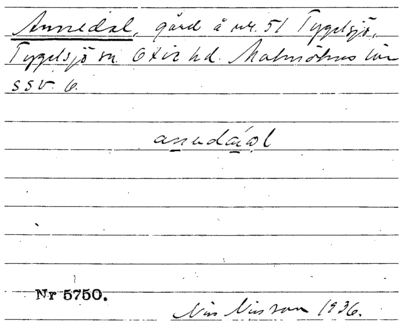 Annedal, gård å nr. 51 Tygelsjö,
Tygelsjö sn Oxie hd. Malmöhus län
SSV 6.
Nr 5750.
Nils Nilsson 1936.